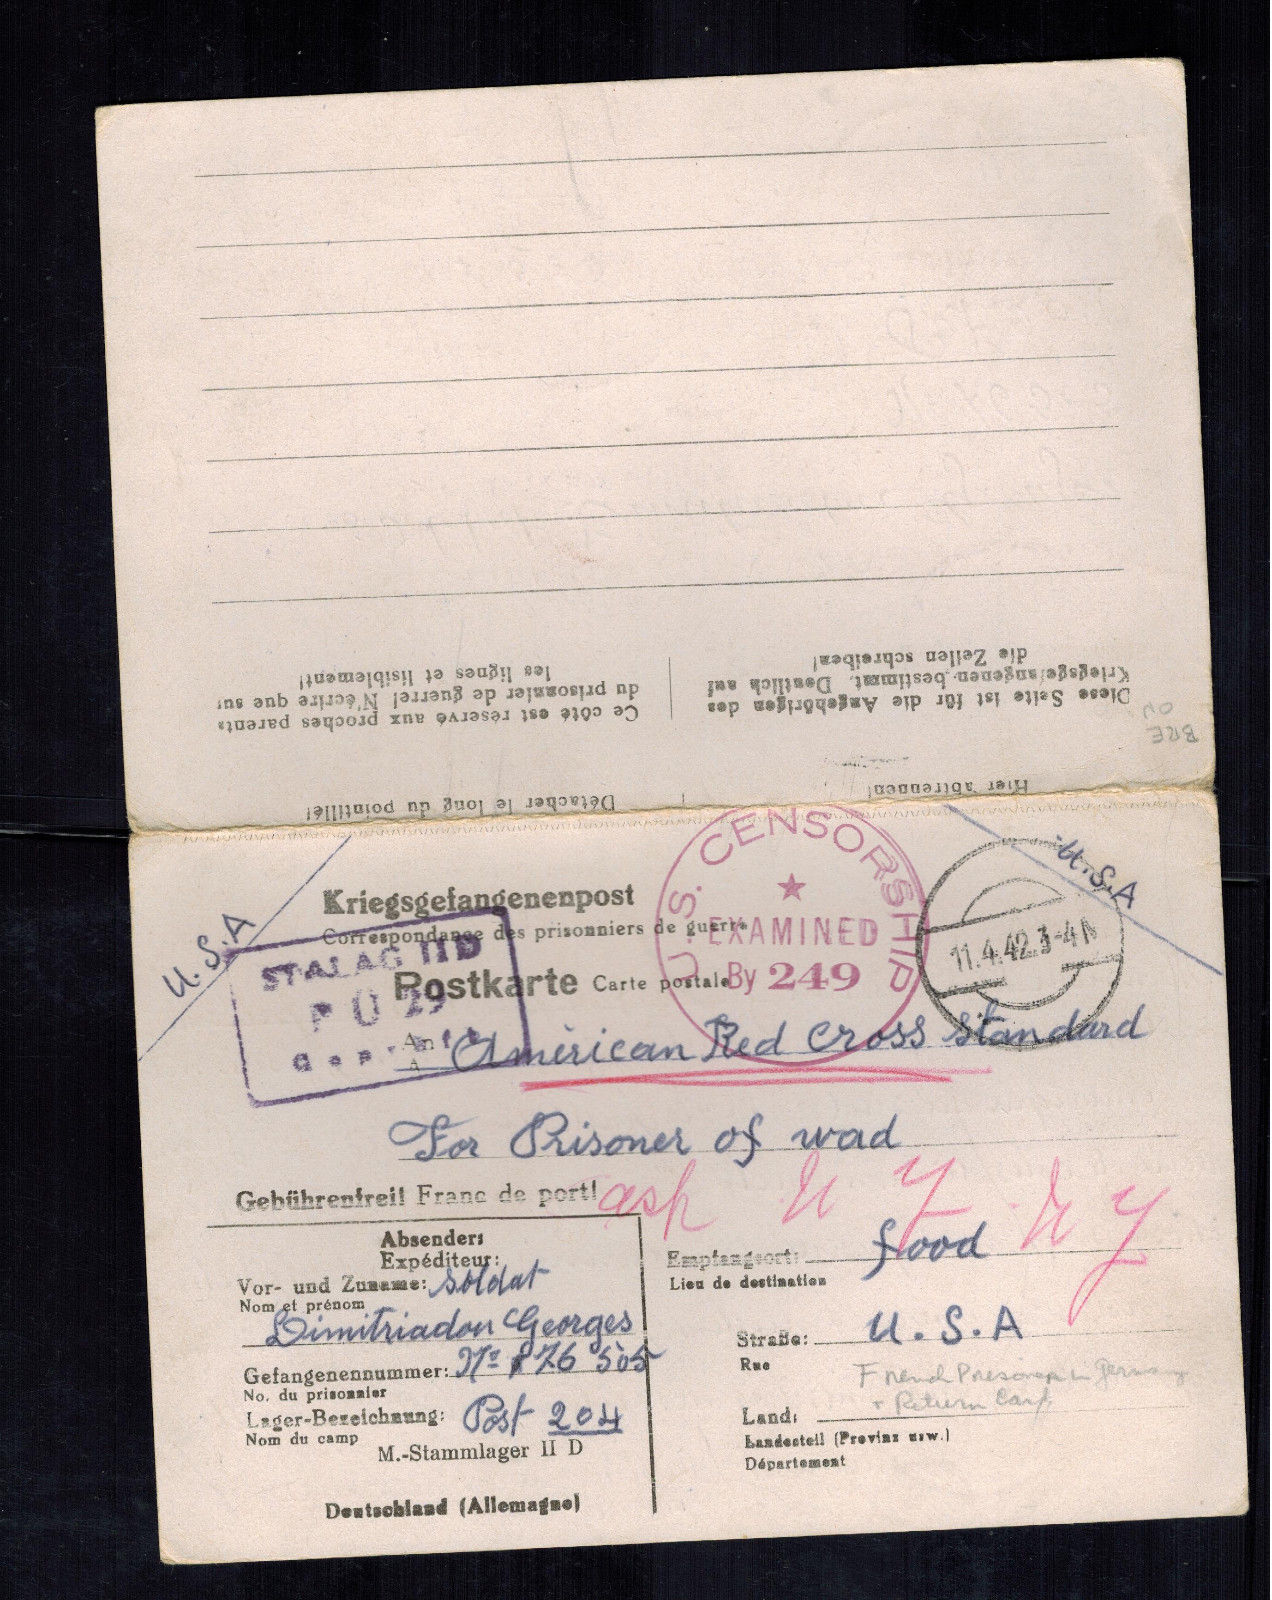 Diese Seite ist für die Angehörigen des
Kriegsgefangenen bestimmt. Deutlich auf
die Zeilen schreiben!
Ce côté est réservé aux proches parents
du prisonnier de guerre! N'écrire que sur
les lignes et lisiblement!
Hier abtrennen!
Détacher le long du pointillé!
BRE
U.S.A
U.S.A
Kriegsgefangenenpost
Correspondance des prisonniers de guerre
Postkarte Carte postale
STALAG IID
U. S. CENSORSHIP
EXAMINED
By 249
11.4.42.3-4N
An
A
American Red Cross Standard
For Prisoner of wad
Gebührenfrei! Franc de port!
N Y N Y
Absender:
Expéditeur:
Vor- und Zuname: Soldat
Nom et prénom
Dimitriadou Georges
Gefangenennummer: No 176 505
No. du prisonnier
Lager-Bezeichnung: Post 204
Nom du camp
M.-Stammlager II D
Deutschland (Allemagne)
Empfangsort: food
Lieu de destination
Straße: U.S.A
Rue
French Prisoner in Germany
+ Return Card
Land:
Landesteil (Provinz usw.)
Département